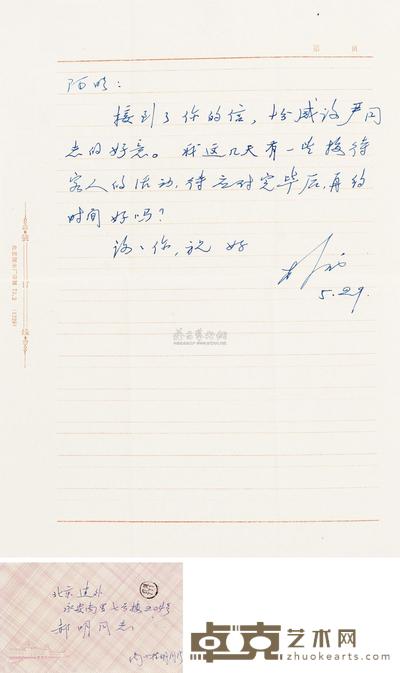 第 页
陌明:
接到了你的信,十分感谢严同
志的好意。我这几天有一些接待
客人的活动,待应付完毕后,再约
时间好吗?
谢谢你,祝 好
5.29.
装 订 线
北京 建外
永安南里七号楼204号
郝明同志
卓克艺术网
www.zhuokearts.com